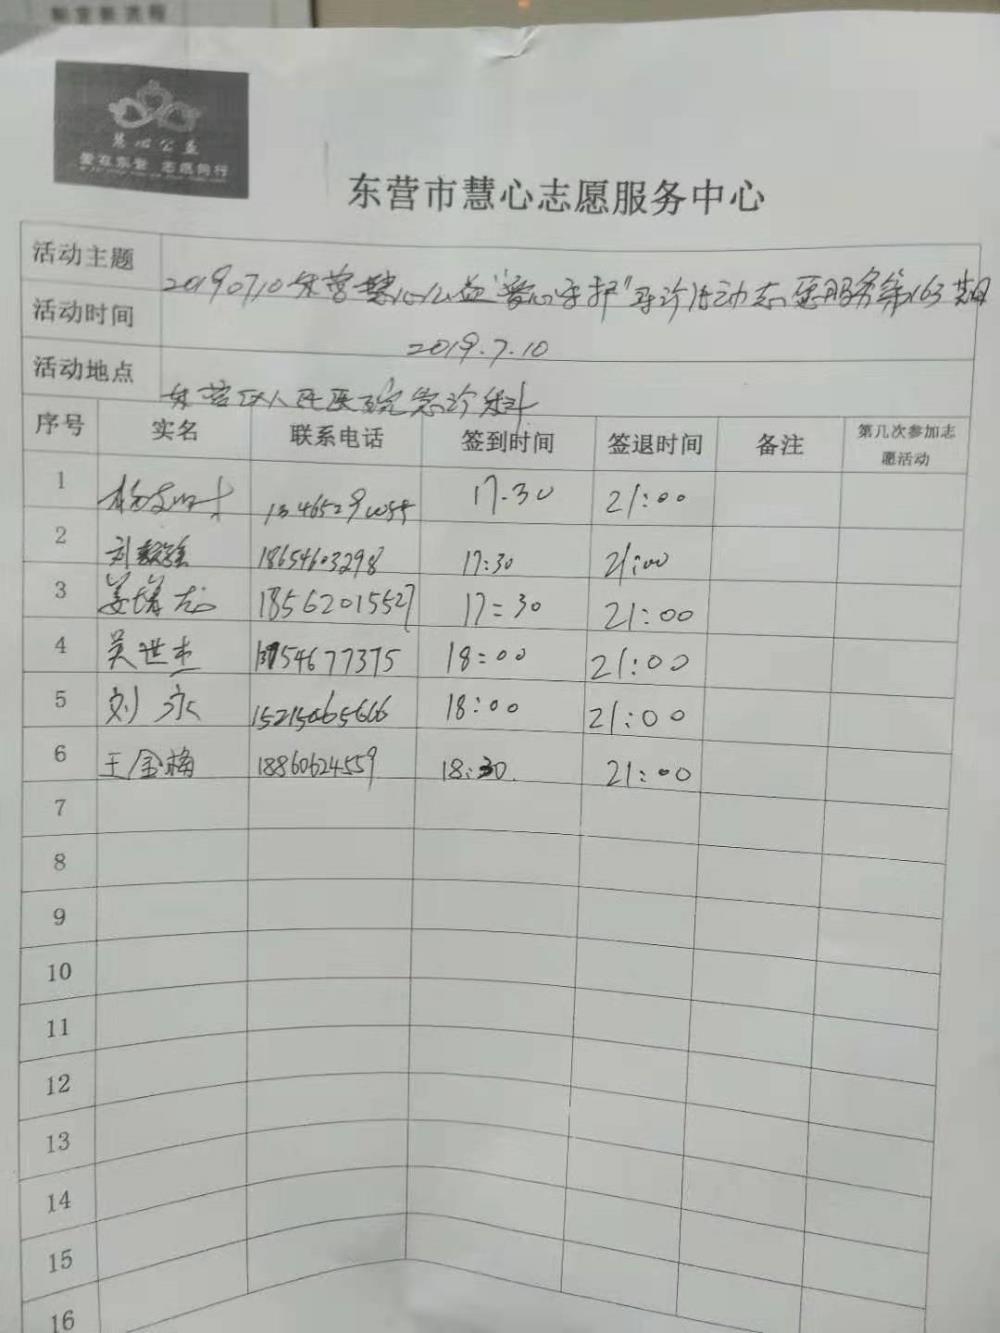 慧心公益
爱在东营 志愿同行
东营市慧心志愿服务中心
活动主题 20190710东营慧心公益“爱心守护”导诊活动志愿服务第163期
活动时间 2019.7.10
活动地点 东营区人民医院急诊科
序号 实名 联系电话 签到时间 签退时间 备注 第几次参加志愿活动
1 17.30 21:00
2 刘 18654603298 17:30 21:00
3 姜增志 18562015527 17:30 21:00
4 吴世杰 13754677375 18:00 21:00
5 刘永 15215065666 18:00 21:00
6 王金梅 18860624559 18:30 21:00
7
8
9
10
11
12
13
14
15
16